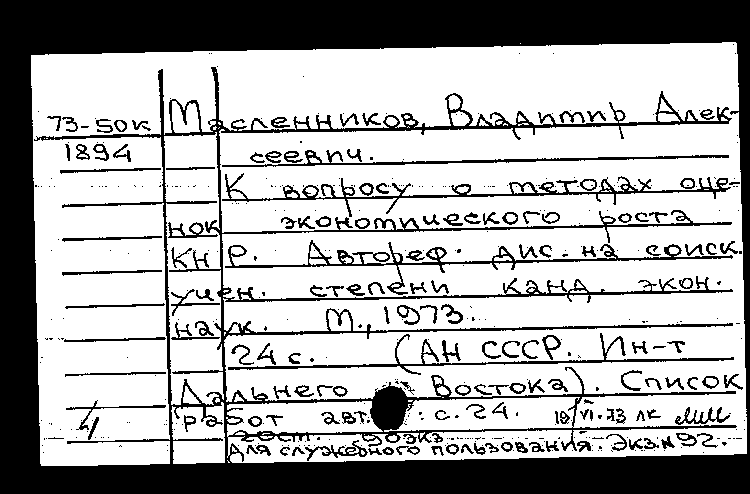 73-50к Масленников, Владимир Алек-
1894 сеевич.
К вопросу о методах оце-
нок экономического роста
КНР. Автореф. дис. на соиск.
учен. степени канд. экон.
наук. М., 1973.
24 с. (АН СССР. Ин-т
Дальнего Востока). Список
4 работ авт. : с. 24. 19/VI-73 лк
90экз
Для служебного пользования. Экз.№92.